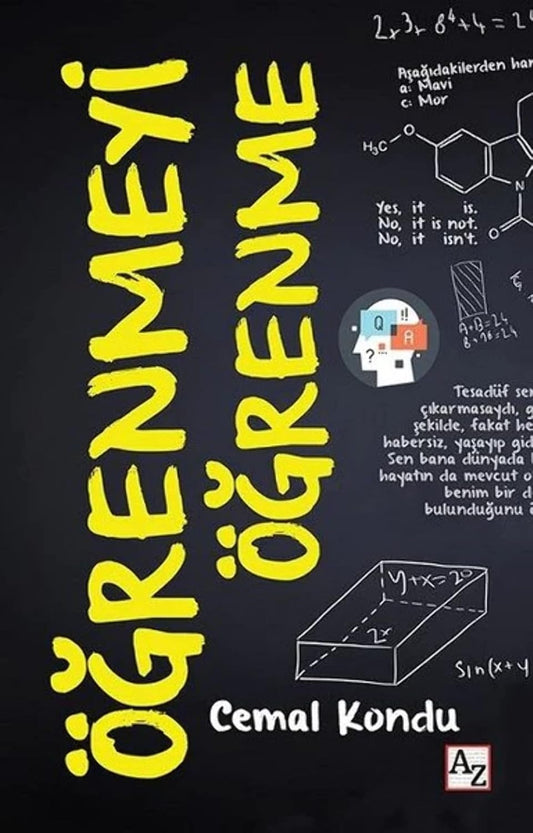 ÖĞRENMEYİ
ÖĞRENME
2x3x 8⁴+4 = 2
Aşağıdakilerden
a: Mavi
c: Mor
H₃C
O
N
O
Yes, it is.
No, it is not.
No, it isn't.
A+B=24
Q !!
A
? ...
Tesadüf
çıkarmasaydı,
şekilde, fakat
habersiz, yaşayıp
Sen bana dünyada
hayatın da mevcut
benim bir
bulunduğunu
y+x=20
2x
Sin(x+y
Cemal Kondu
AZ